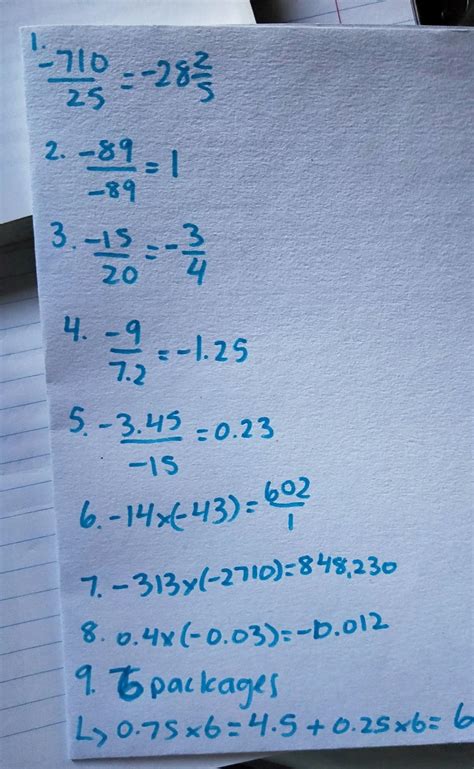 1. -710/25 = -28 2/5
2. -89/-89 = 1
3. -15/20 = -3/4
4. -9/7.2 = -1.25
5. -3.45/-15 = 0.23
6. -14x(-43) = 602/1
7. -313x(-2710)=848,230
8. 0.4x(-0.03)=-0.012
9. 6 packages
↳ 0.75x6=4.5+0.25x6=6